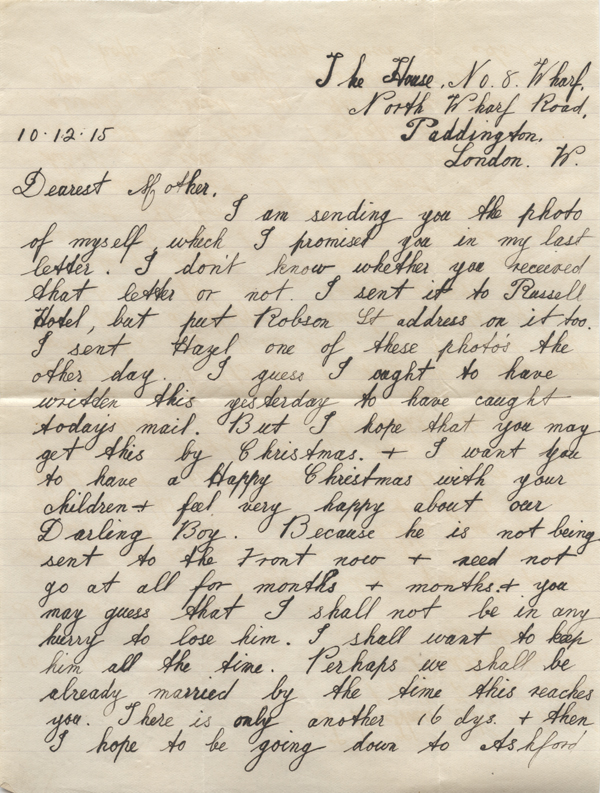 The House, No. 8. Wharf,
North Wharf Road,
Paddington.
10.12.15
London. W.
Dearest Mother,
I am sending you the photo
of myself, which I promised you in my last
letter. I don't know whether you received
that letter or not. I sent it to Russell
Hotel, but put Robson St address on it too.
I sent Hazel one of these photo's the
other day. I guess I ought to have
written this yesterday to have caught
todays mail. But I hope that you may
get this by Christmas. + I want you
to have a Happy Christmas with your
children + feel very happy about our
Darling Boy. Because he is not being
sent to the Front now + need not
go at all for months + months. + you
may guess that I shall not be in any
hurry to lose him. I shall want to keep
him all the time. Perhaps we shall be
already married by the time this reaches
you. There is only another 16 dys. + then
I hope to be going down to Ashford